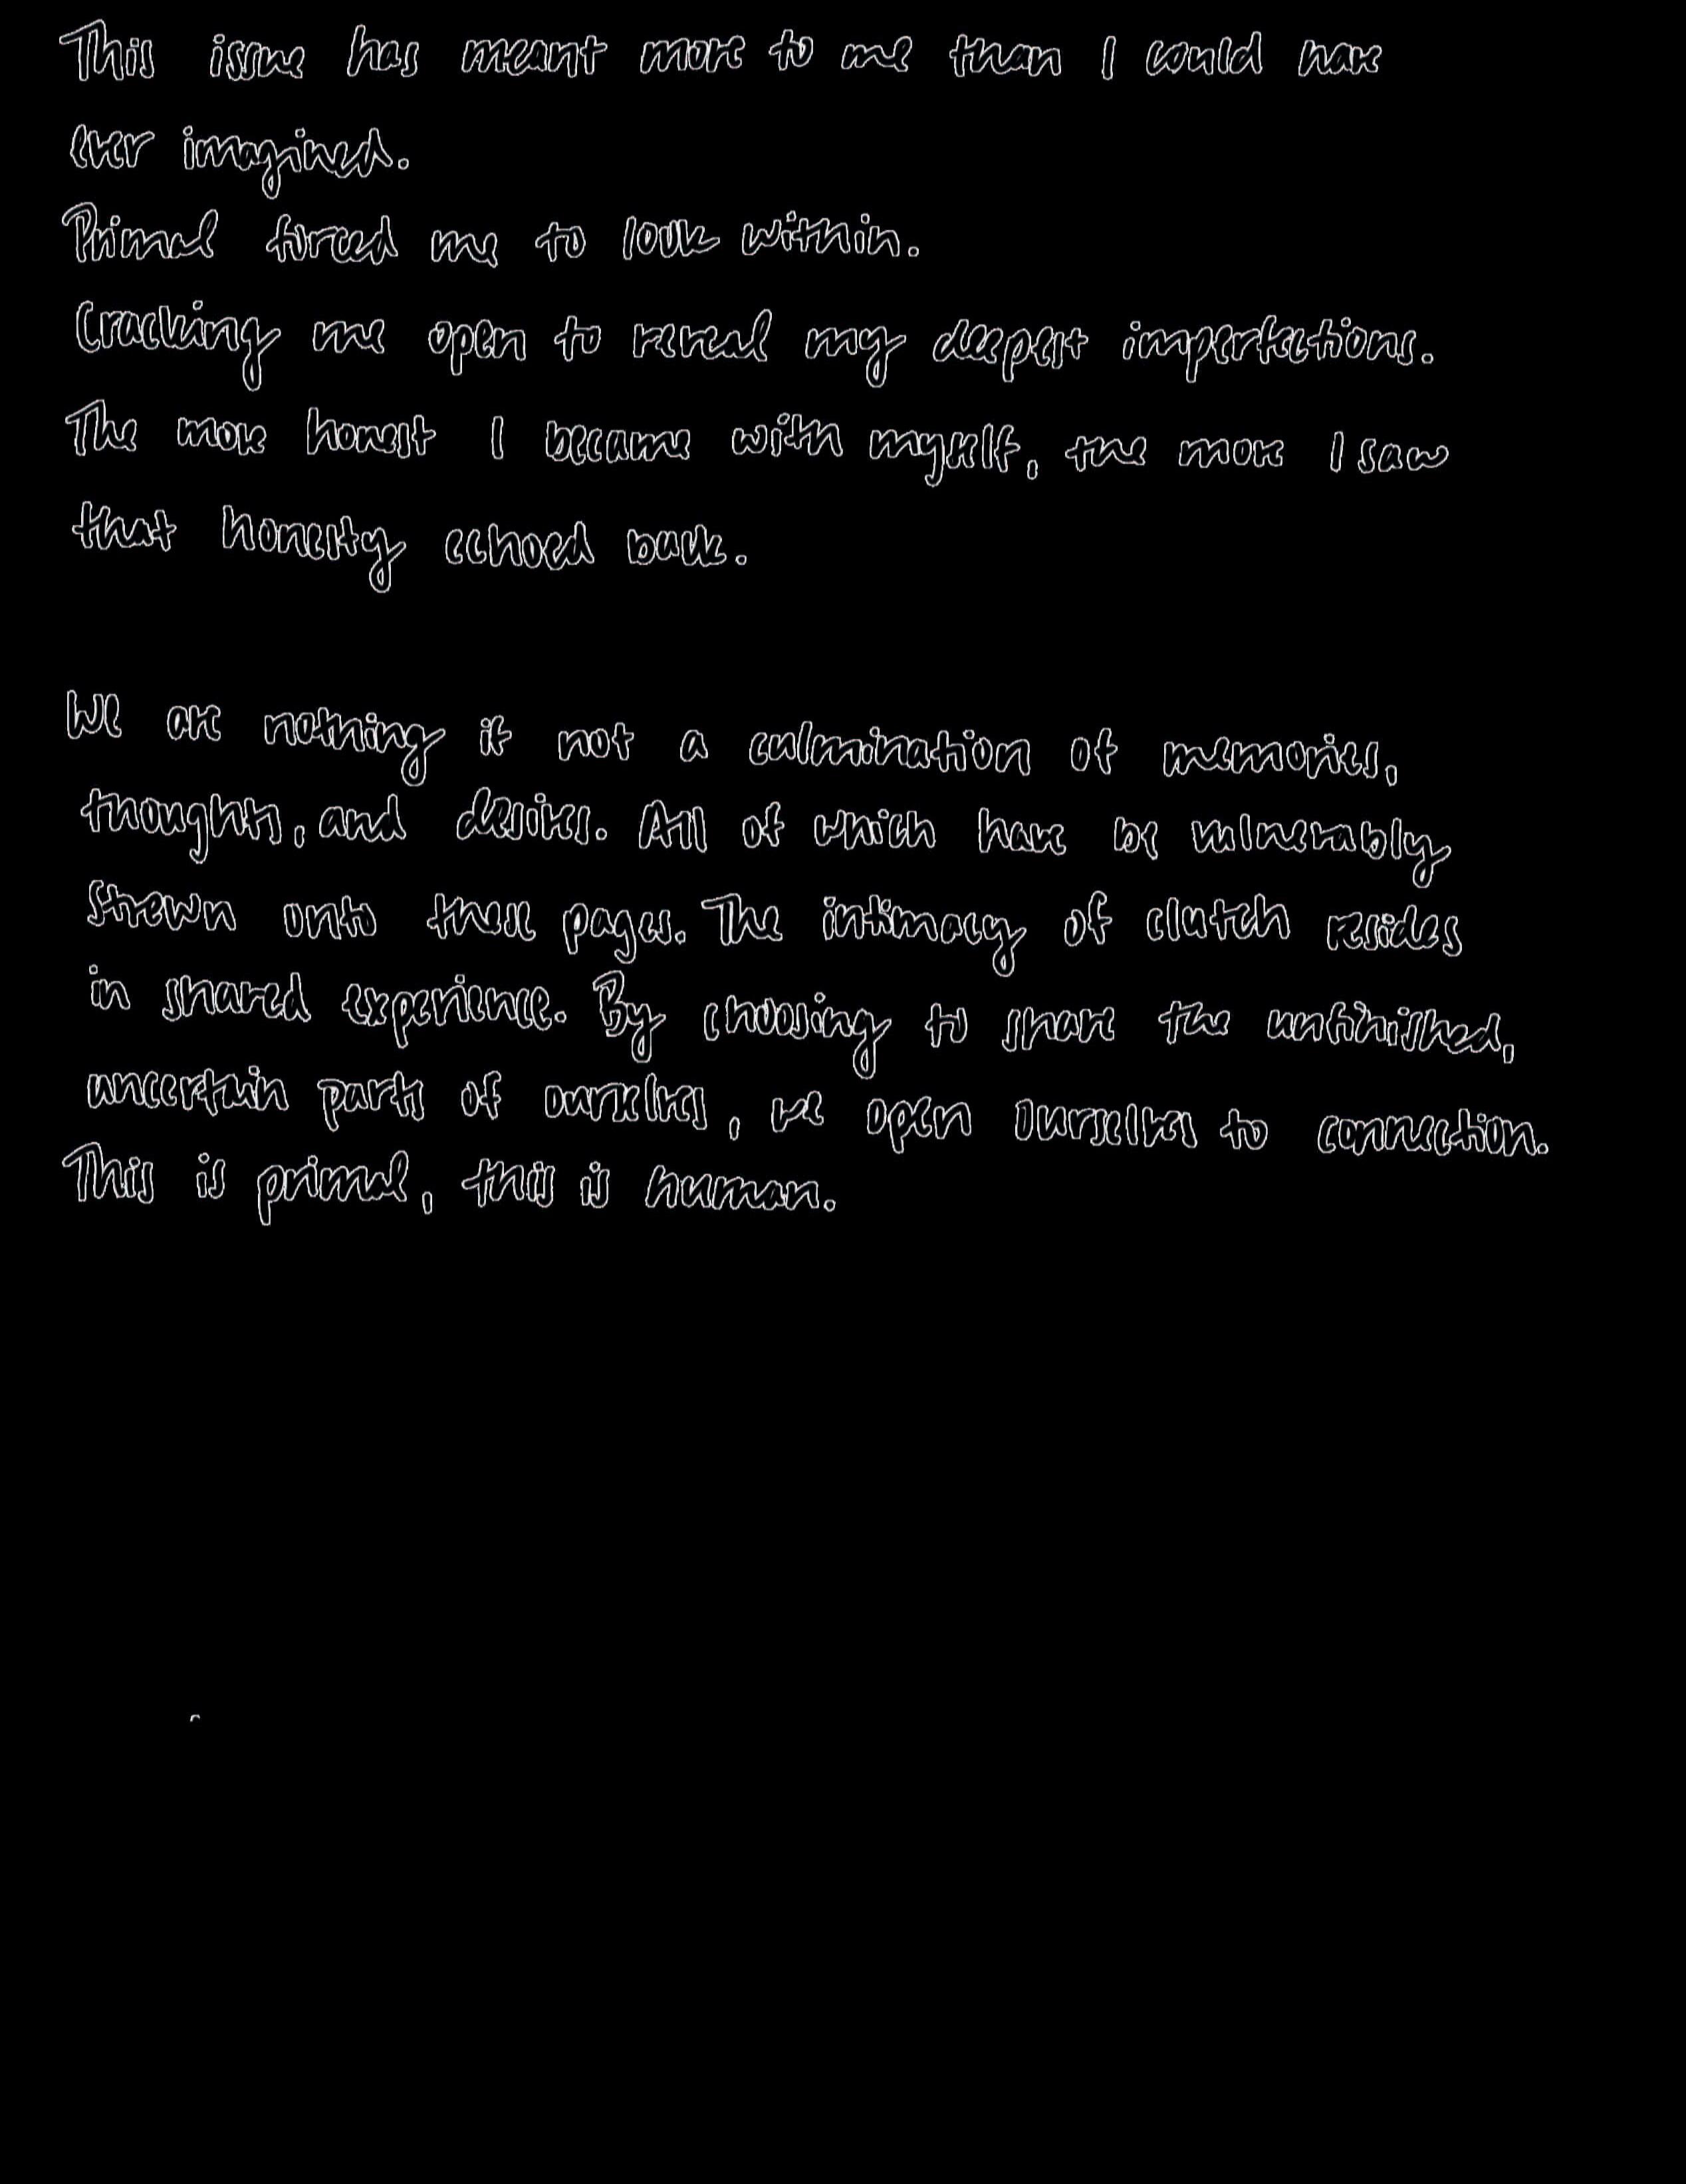 This issue has meant more to me than I could have
ever imagined.
Primal forced me to look within.
Cracking me open to reveal my deepest imperfections.
The more honest I became with myself, the more I saw
that honesty echoed back.
We are nothing if not a culmination of memories,
thoughts, and desires. All of which have be vulnerably
strewn onto these pages. The intimacy of clutch resides
in shared experience. By choosing to share the unfinished,
uncertain parts of ourselves, we open ourselves to connection.
This is primal, this is human.